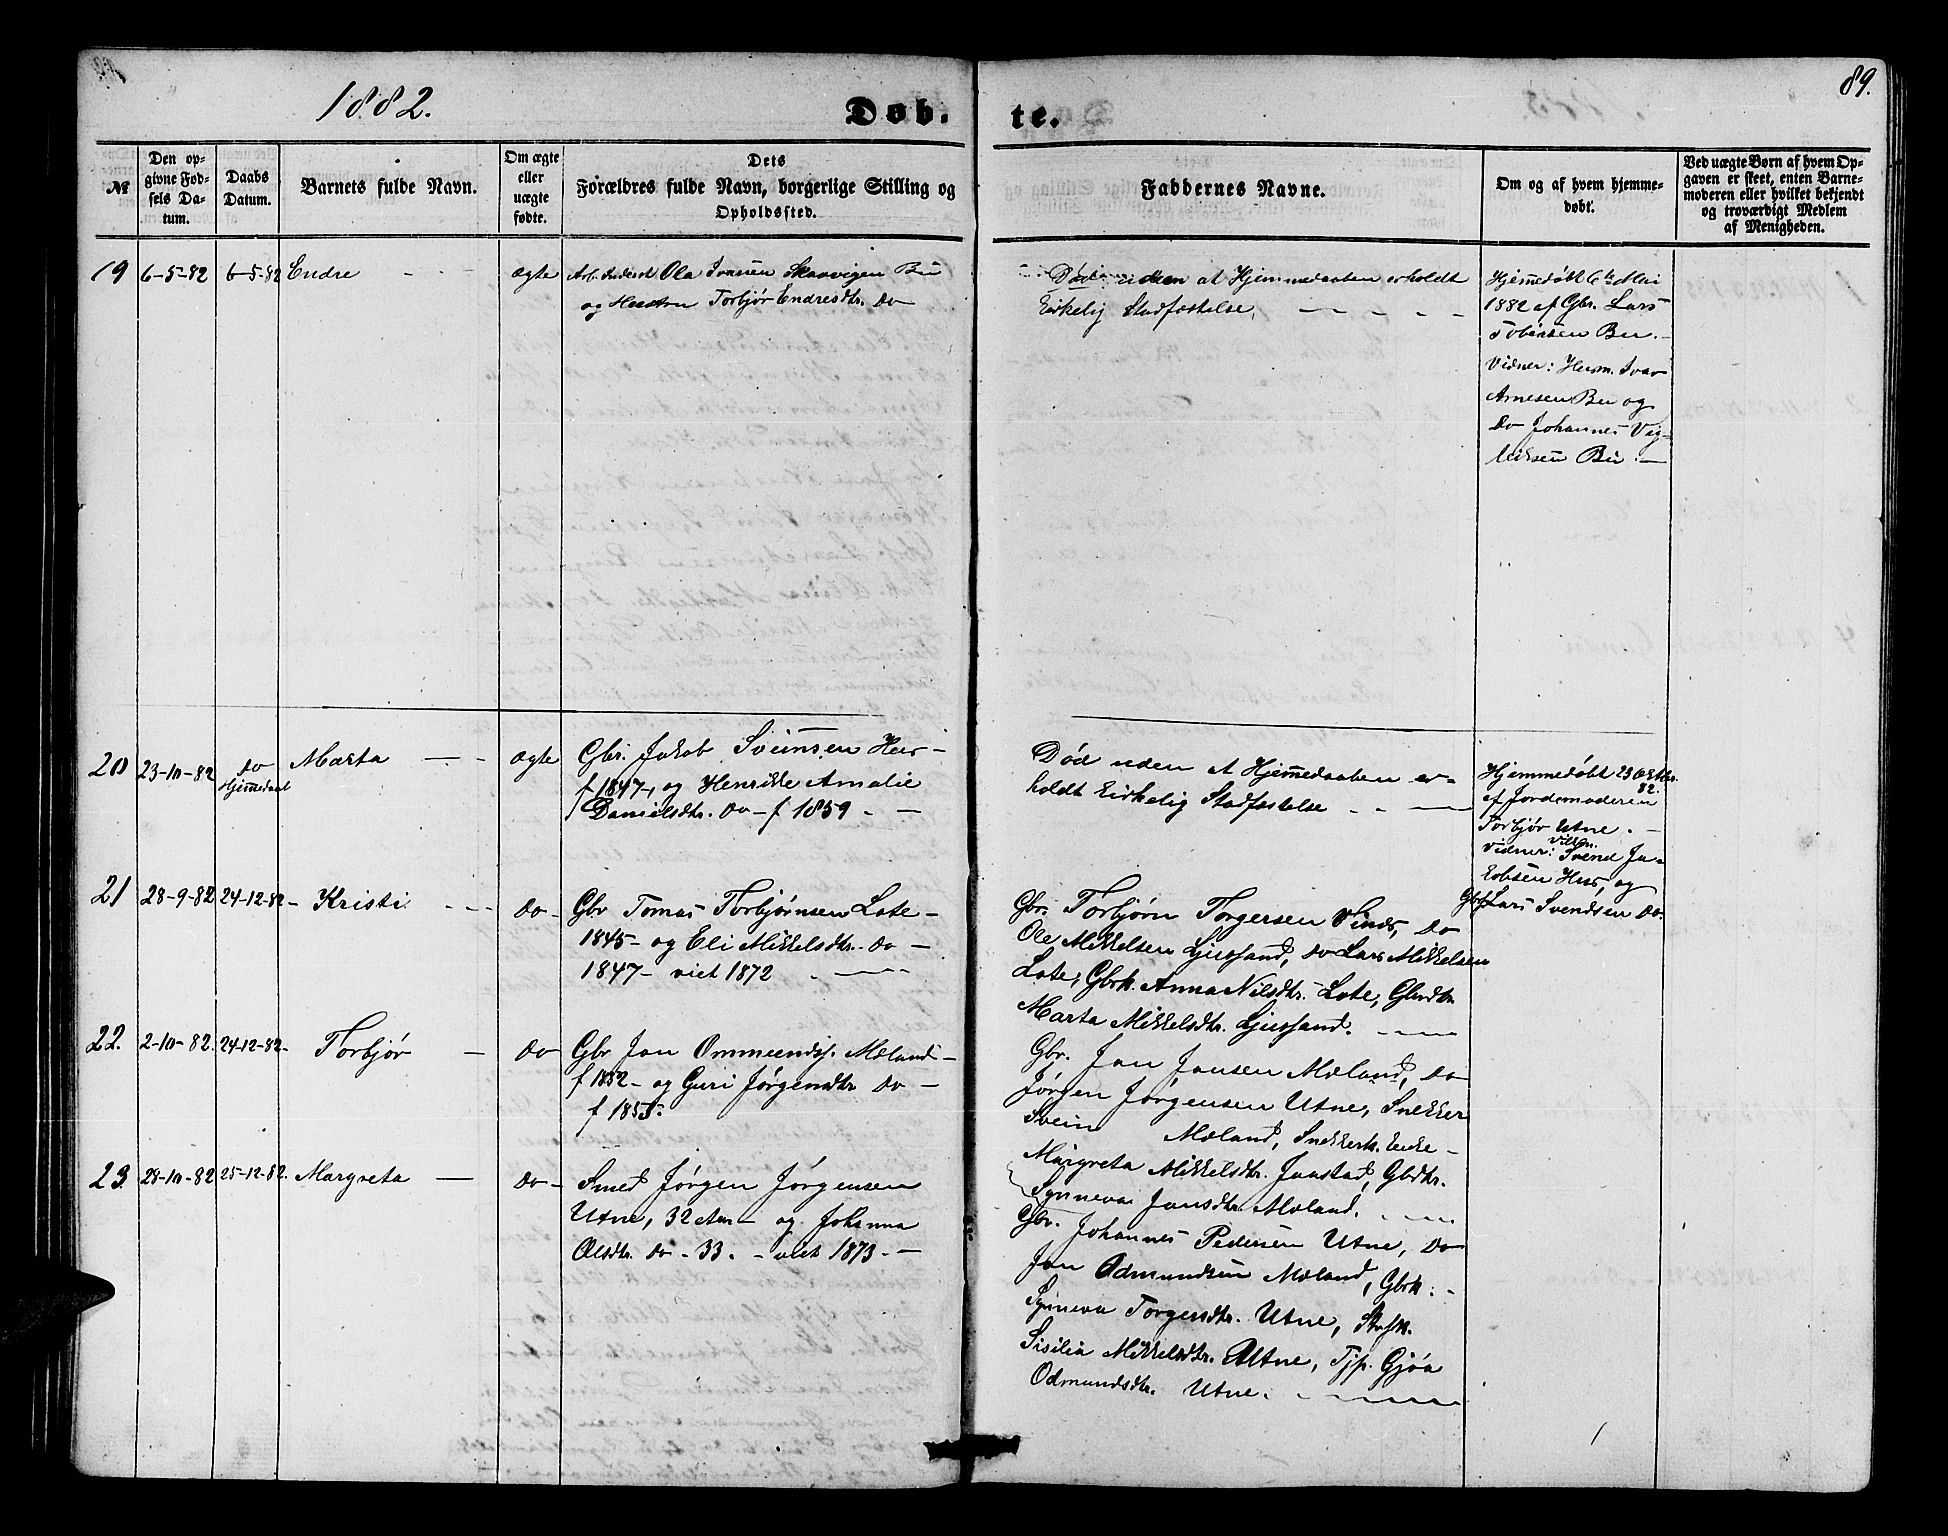 1882.
Døb.
te.
89.
№
Den op-
givne Fød-
sels Da-
tum.
Daabs
Datum.
Barnets fulde Navn.
Om ægte
eller
uægte
fødte.
Dets
Forældres fulde Navn, borgerlige Stilling og
Opholdssted.
Faddernes Navne.
Om og af hvem hjemme-
døbt.
Ved uægte Børn af hvem Op-
gaven er skeet, enten Barne-
moderen eller hvilket bekjendt
og troværdigt Medlem
af Menigheden.
19
6-5-82
6-5-82
Endre
ægte
Ola Ivarsen Skaavigen Bu
og Hustru Torbjør Endresdtr. Do
Død uden at Hjemmedaaben erholdt
kirkelig Stadfæstelse.
Hjemmedøbt 6te Mai
1882 af Gbr. Lars
Tobiassen Bu.
Vidner: Husm. Ivar
Arnesen Bu og
Do Johannes Vig-
leiksen Bu.
20
23-10-82
Do
Hjemmedøbt
Marta
ægte
Gbr. Jakob Svensen Hus
f 1847, og Henrikke Amalie
Danielsdtr. Do - f 1859
Død uden at Hjemmedaaben er-
holdt kirkelig Stadfæstelse
Hjemmedøbt 23 Oktbr.
82.
af Jordemoderen
Torbjør Utne.
Vidner: Svend Ja-
kobsen Hus, og
Gbr. Lars Svendsen Do.
21
28-9-82
24-12-82
Kristi
Do
Gbr Tomas Torbjørnsen Lote
1845 - og Eli Mikkelsdtr. Do
1847 - viet 1872
Gbr. Torbjørn Torgersen Vines, Do
Ole Mikkelsen Ljussand, Do Lars Mikkelsen
Lote, Gbrk. Anna Nilsdtr. Lote, Gbrdtr
Marta Mikkelsdtr. Ljussand.
22.
2-10-82.
24-12-82.
Torbjør
Do
Gbr Jan Ommundsj. Mæland
f 1852 - og Guri Jørgensdtr Do
f 1855.
Gbr. Jan Jansen Mæland, Do
Jørgen Jørgensen Utne, Snekker
Svein Mæland, Snekkerk. Enke
Margreta Mikkelsdtr. Jaastad, Gbrdtr.
Synneva Jansdtr. Mæland.
23
28-10-82
25-12-82.
Margreta
Do
Smed Jørgen Jørgensen
Utne, 32 Aar - og Johanna
Olsdtr. Do - 33. - viet 1873.
Gbr. Johannes Pedersen Utne, Do
Jan Odmundsen Mæland, Gbrk.
Synneva Torgersdtr. Utne,
Sisilia Mikkelsdtr. Utne, Tjp. Gjøa
Odmundsdtr. Utne.